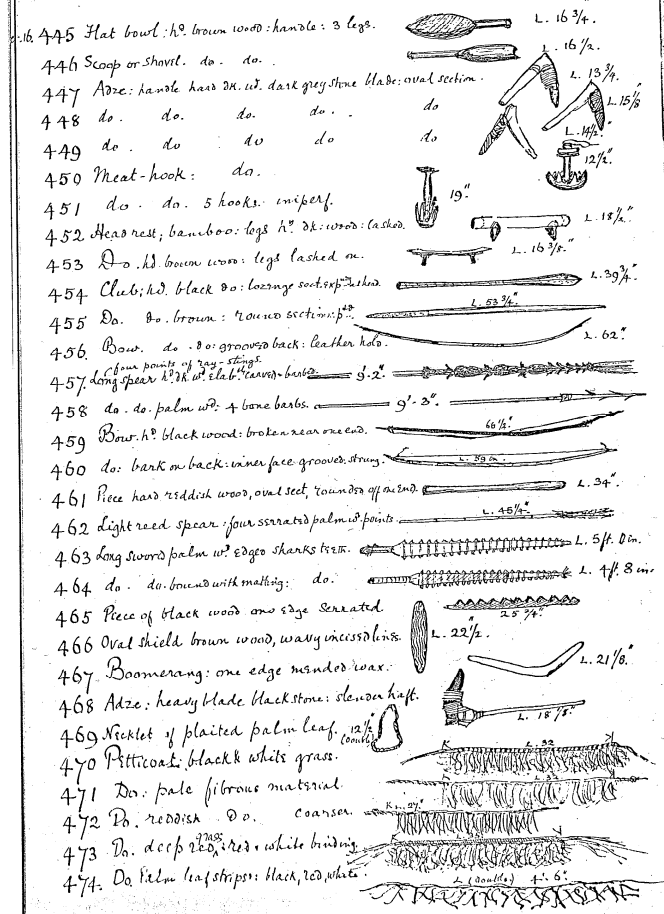 445 Flat bowl: hd. brown wood: handle: 3 legs. L. 16 3/4.
446 Scoop or shovel. do. do. L. 16 1/2.
447 Adze: handle hard dk. wd. dark grey stone blade: oval section. L. 13 3/4.
448 do. do. do. do. do L. 15 1/8"
449 do. do do do do L. 14 1/2"
450 Meat-hook: do. 12 1/2"
451 do. do. 5 hooks. imperf. 19"
452 Head rest; bamboo: legs hd. dk: wood: lashed. L. 18 1/2"
453 Do. hd. brown wood: legs lashed on. L. 16 3/8."
454 Club; hd. black do: lozenge sect. L. 39 3/4"
455 Do. do. brown: round section: L. 53 3/4"
456. Bow. do. do: grooved back: leather hold. L. 62".
four points of ray-stings.
457. Long spear hd. dk. wd. Elabtly. carved + barbed 9'-2".
458 do. do. palm wd: 4 bone barbs. 9'-3".
459 Bow. hd. black wood: broken near one end. 66 1/2"
460 do: bark on back: inner face grooved: strung. L. 59 in.
461 Piece hard reddish wood, oval sect, rounded off one end. L. 34"
462 Light reed spear: four serrated palm wd. points. L. 45 1/4"
463 Long sword palm wd. edged sharks teeth. L. 5 ft. 0 in.
464 do. do. bound with matting: do. L. 4 ft. 8 in.
465 Piece of black wood one edge serrated 25 3/4"
466 Oval shield brown wood, wavy incised lines. L. 22 1/2"
467 Boomerang: one edge mended wax. L. 21 1/8"
468 Adze: heavy blade black stone: slender haft. L. 18 1/8"
469 Necklet of plaited palm leaf. 12 1/2" (double)
470 Petticoat: black & white grass. L. 32
471 Do: pale fibrous material L. 32
472 Do. reddish Do. coarser. L. 27"
473 Do. deep red grass: red & white binding.
474. Do. Palm leaf strips: black, red, white. L (double) 4'. 6"